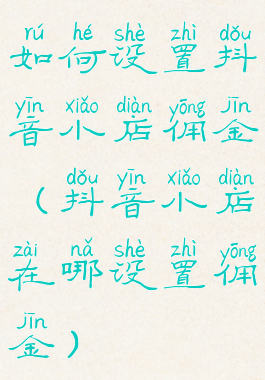 rú hé shè zhì dǒu
如何设置抖
yīn xiǎo diàn yōng jīn
音小店佣金
dǒu yīn xiǎo diàn
（抖音小店
zài nǎ shè zhì yōng
在哪设置佣
jīn
金）